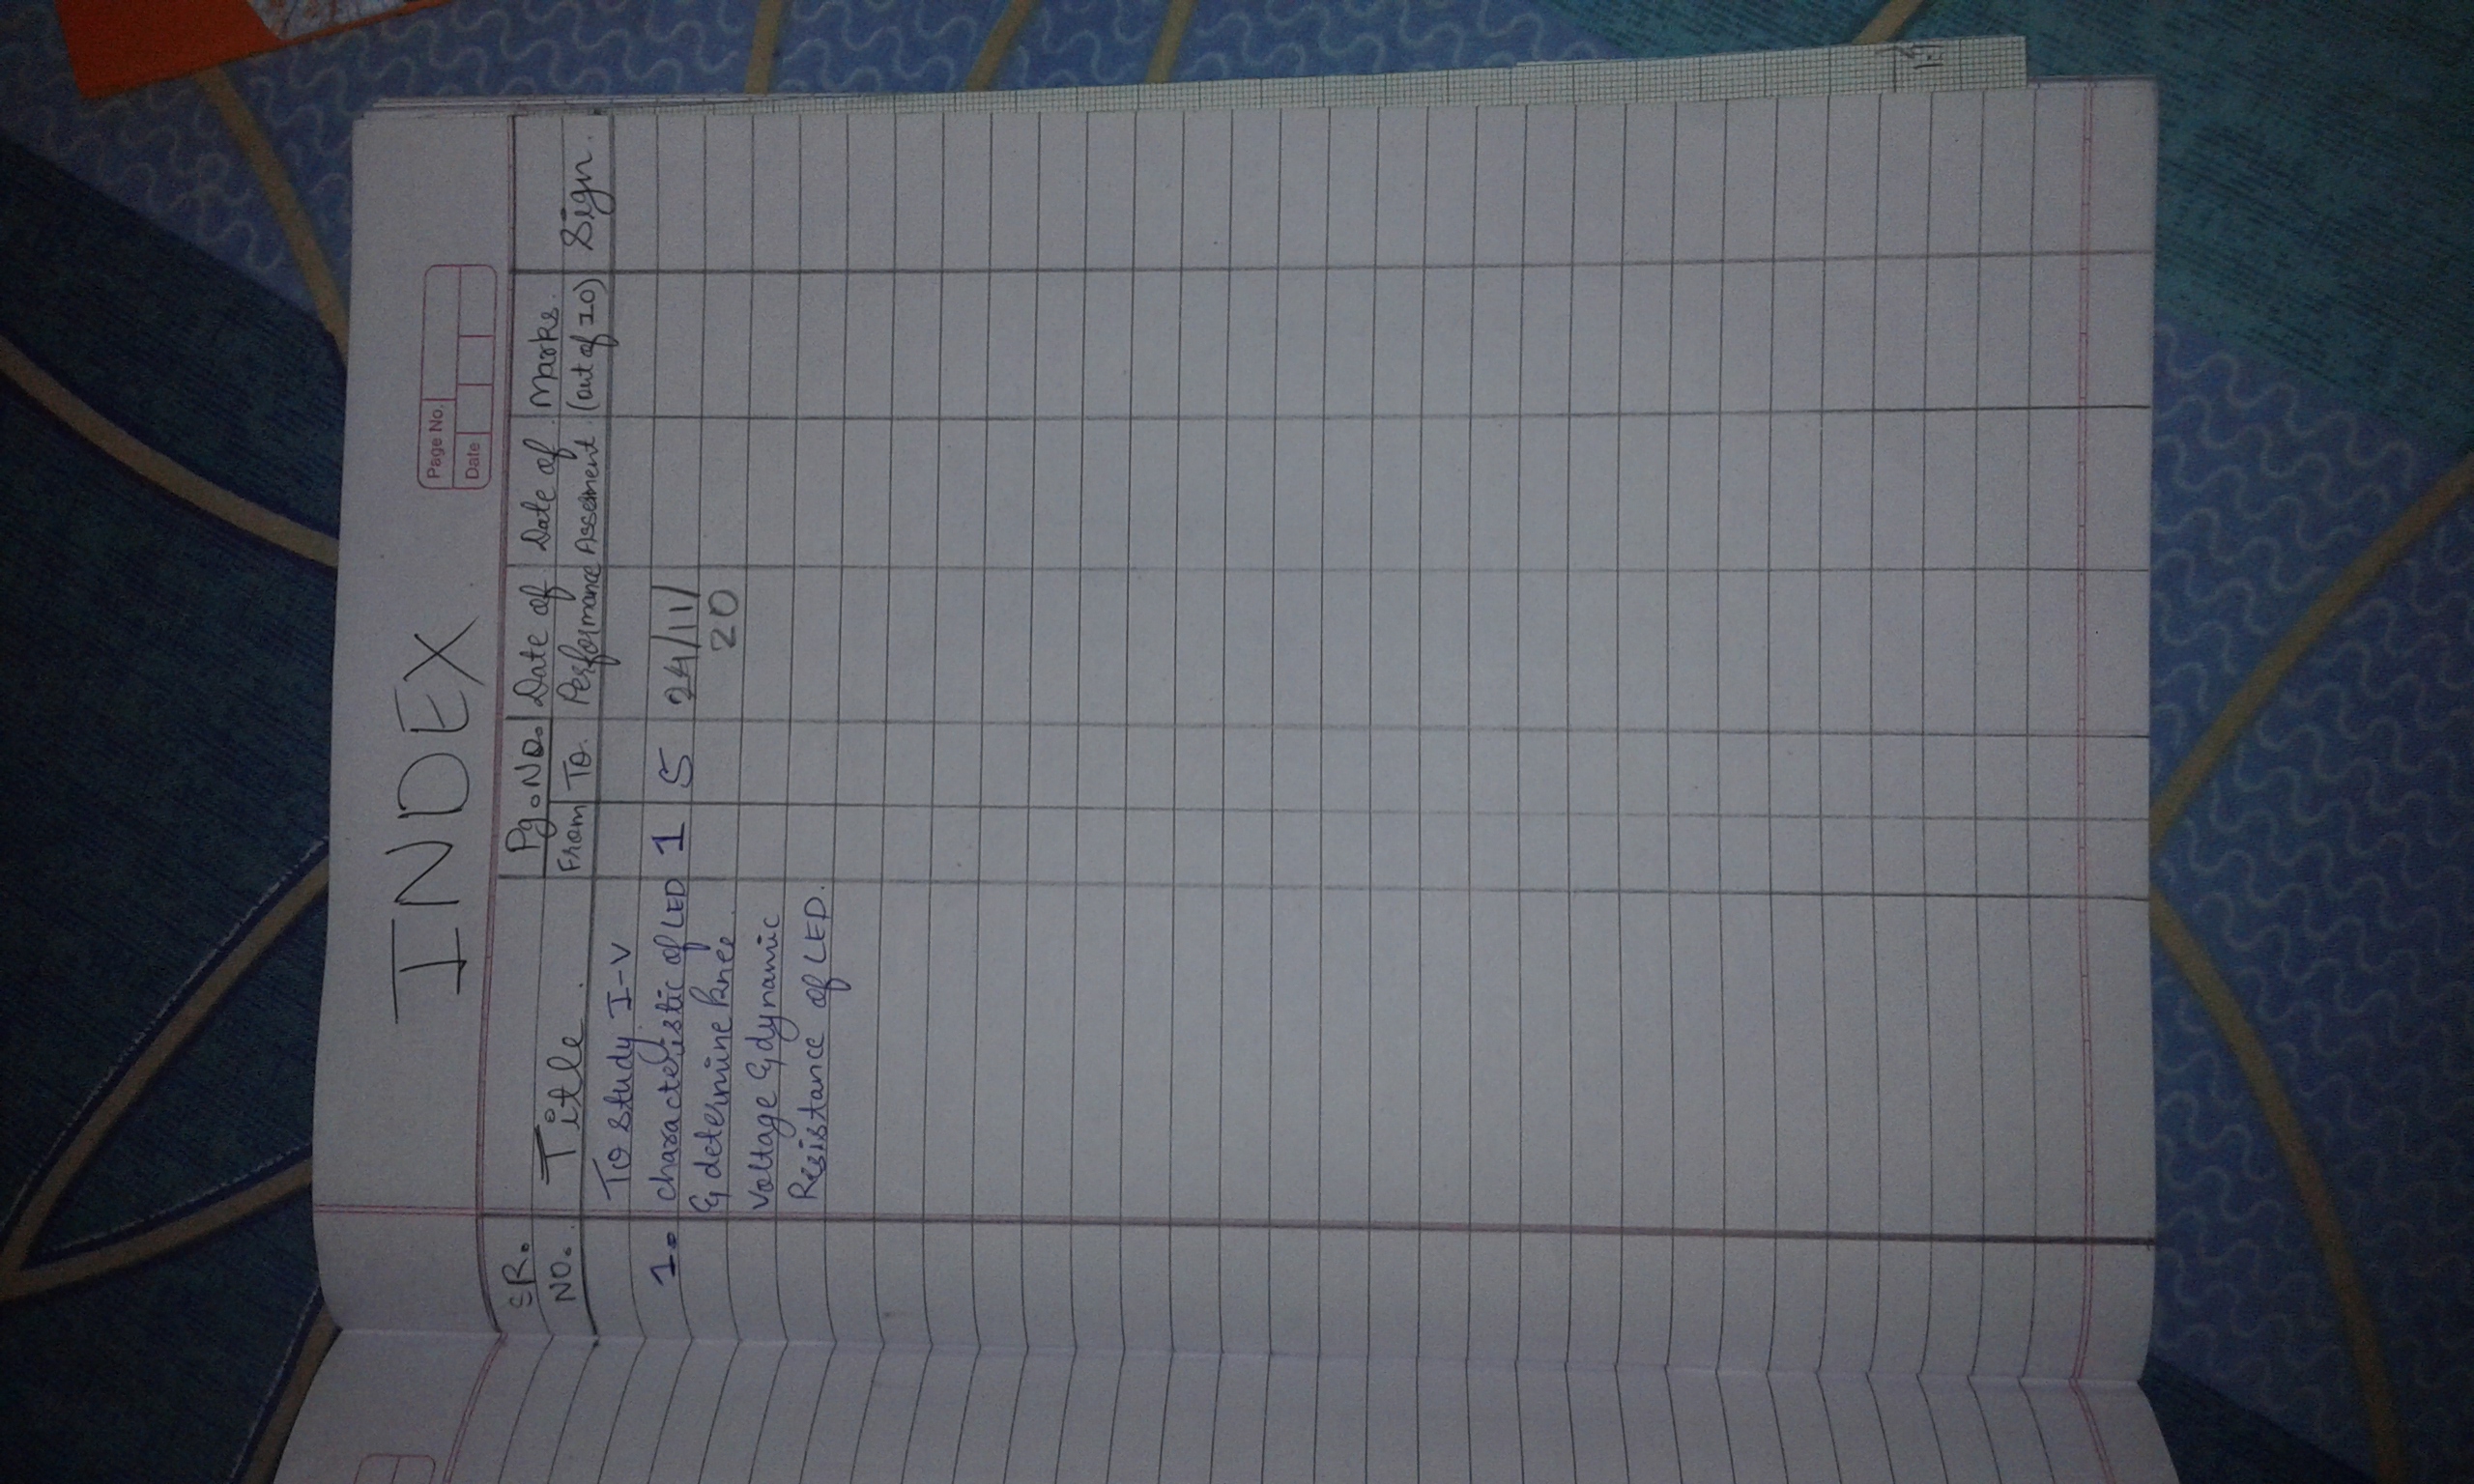 INDEX
Page No.
Date
SR. NO.
Title
Pg. No.
From
To
Date of Performance
Date of Assesment
Marks (out of 10)
Sign.
To study I-V
1. characteristic of LED 1 5 24/11/
& determine knee 20
voltage & dynamic
Resistance of LED.